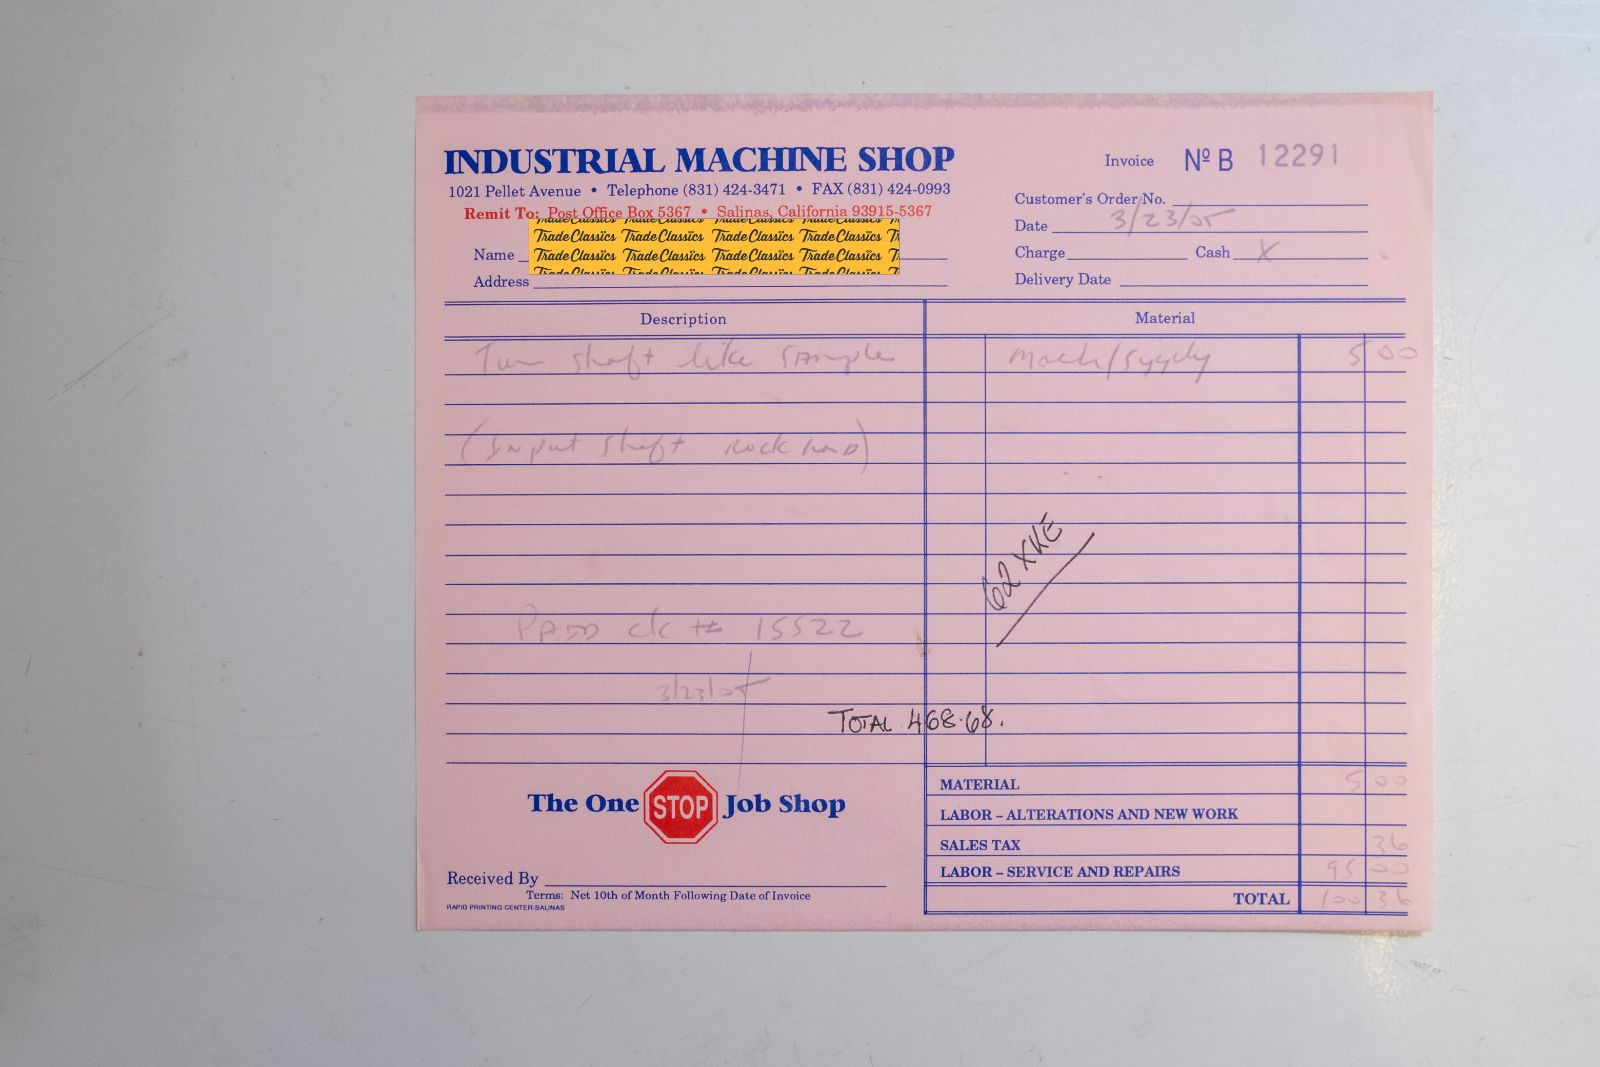 INDUSTRIAL MACHINE SHOP
1021 Pellet Avenue • Telephone (831) 424-3471 • FAX (831) 424-0993
Remit To: Post Office Box 5367 • Salinas, California 93915-5367
Invoice Nº B 12291
Customer's Order No.
Date 3/23/05
Charge Cash X
Delivery Date
Name
Trade Classics Trade Classics Trade Classics Trade Classics
Trade Classics Trade Classics Trade Classics Trade Classics
Address
Description Material
Turn shaft like sample Mach/Supply 5 00
(Input shaft Rock hard)
62 XKE
PAID ck # 15522
3/23/05
TOTAL 468.68.
The One STOP Job Shop
MATERIAL 5 00
LABOR – ALTERATIONS AND NEW WORK
SALES TAX 36
LABOR – SERVICE AND REPAIRS 95 00
TOTAL 100 36
Received By
Terms: Net 10th of Month Following Date of Invoice
RAPID PRINTING CENTER-SALINAS